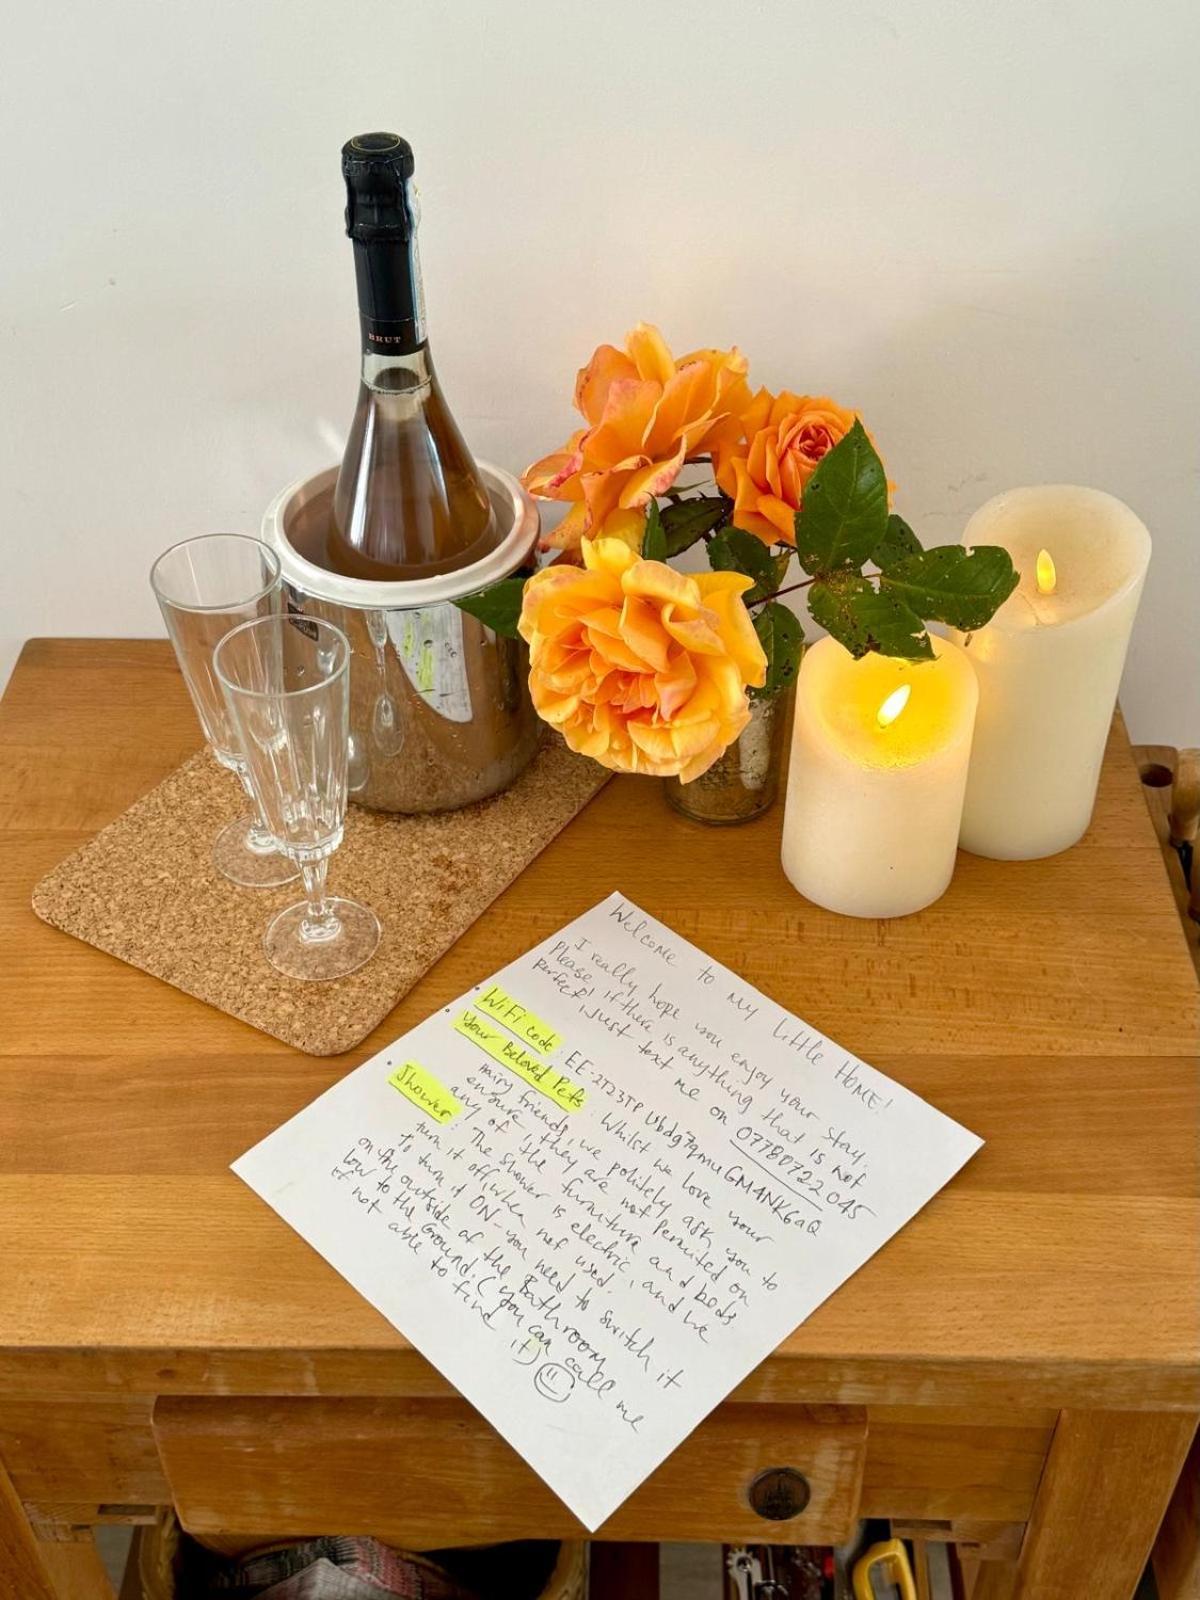 BRUT
Welcome to my little HOME!
I really hope you enjoy your stay.
Please if there is anything that is not
perfect! Just text me on 07780722045
WiFi code: EE-2T23TP
Your Beloved Pets: Whilst we love your
hairy friends, we politely ask you to
ensure, they are not permitted on
any of the furniture and beds.
Shower: The shower is electric, and we
turn it off, when not used.
To turn it ON - you need to switch it
on the outside of the Bathroom
low to the ground. (you can call me
if not able to find it)